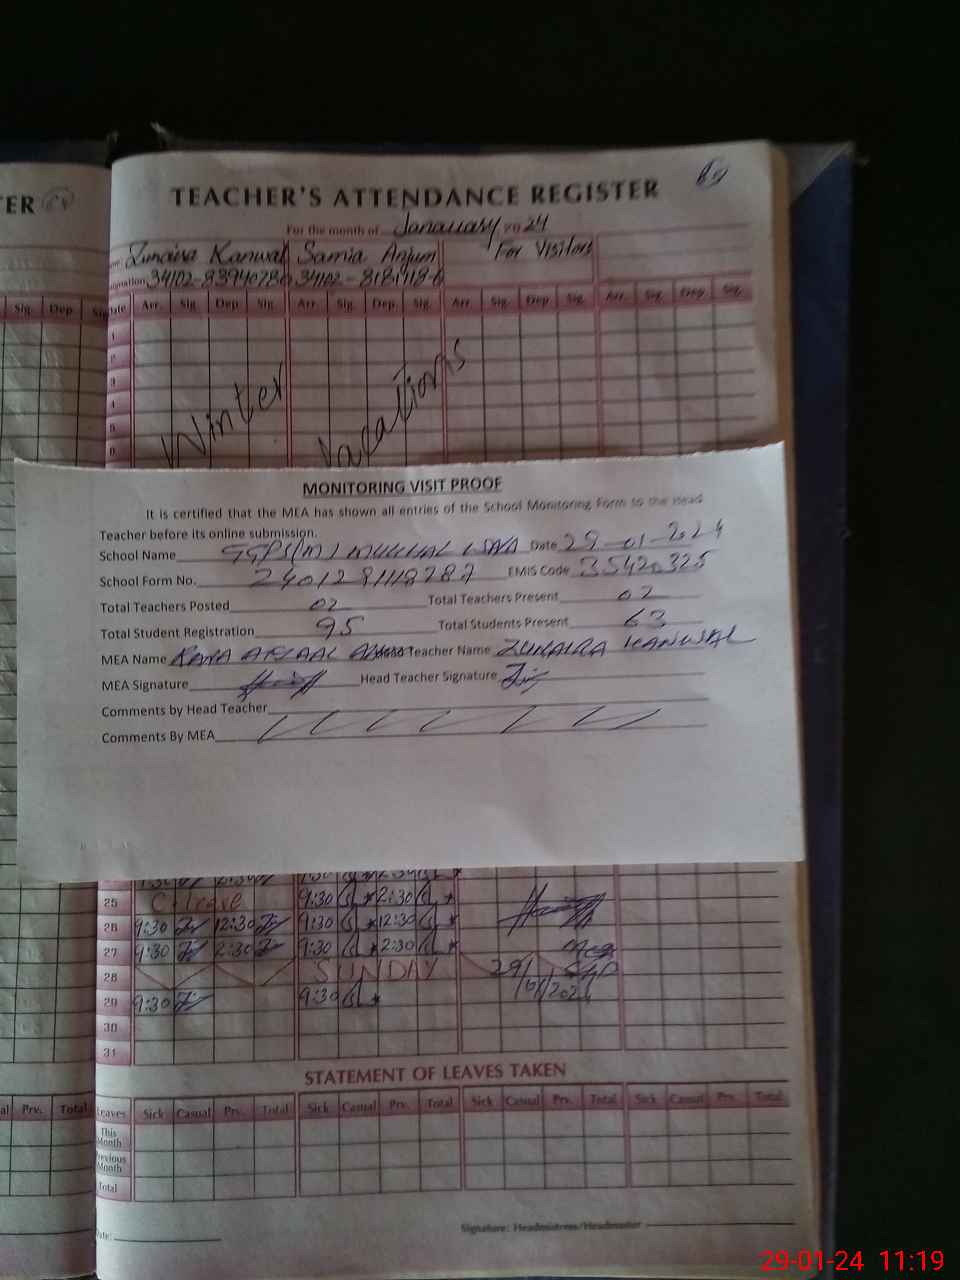 TER
TEACHER'S ATTENDANCE REGISTER
For the month of Janauary 2024
Zunaira Kanwal Samia Anjum For Visitors
Sig. Dep Sig Date Arr. Sig. Dep Sig. Arr. Sig. Dep. Sig. Arr. Sig. Dep Sig. Arr. Sig. Dep Sig.
1
2
3
4
5
6
Winter Vacations
MONITORING VISIT PROOF
It is certified that the MEA has shown all entries of the School Monitoring Form to the Head
Teacher before its online submission.
School Name GGPS(M) Date 29-01-2024
School Form No. EMIS Code 35420325
Total Teachers Posted 02 Total Teachers Present 02
Total Student Registration 95 Total Students Present 63
MEA Name Teacher Name ZUNAIRA KANWAL
MEA Signature Head Teacher Signature
Comments by Head Teacher
Comments By MEA
25 C-leave 9:30 2:30
26 9:30 12:30 9:30 12:30
27 9:30 2:30 9:30 2:30
28 SUNDAY 29/
29 9:30 9:30 /01/2024
30
31
STATEMENT OF LEAVES TAKEN
Prv. Total Leaves Sick Casual Prv. Total Sick Casual Prv. Total Sick Casual Prv. Total Sick Casual Prv. Total
This Month
Previous Month
Total
Date: Signature: Headmistress/Headmaster
29-01-24 11:19